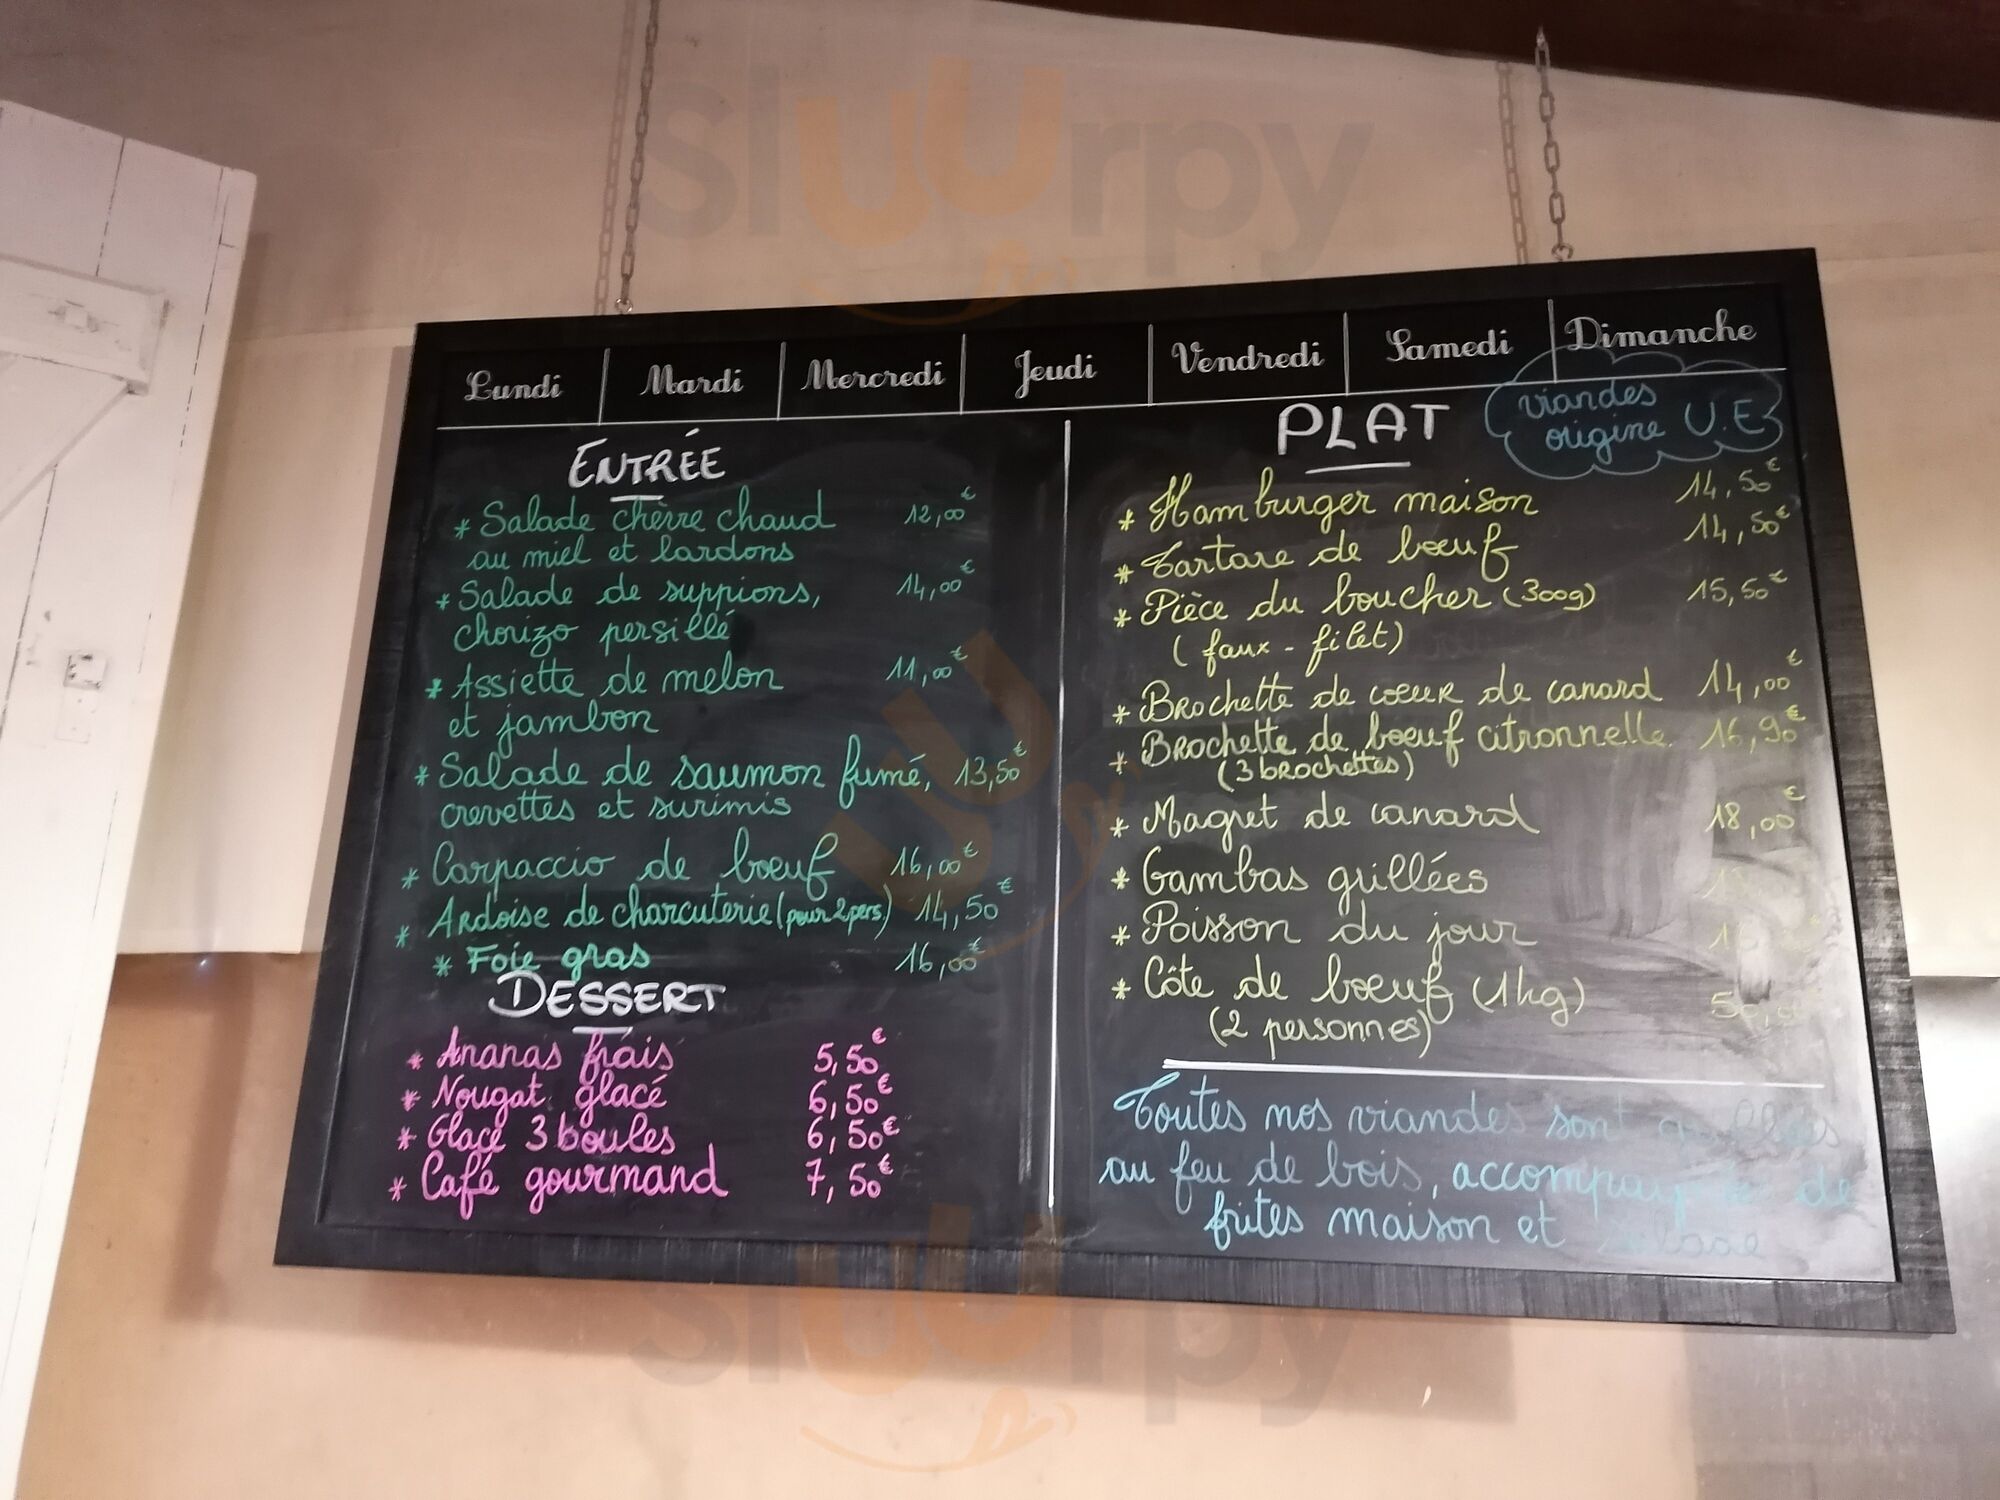 Sluurpy
Lundi Mardi Mercredi Jeudi Vendredi Samedi Dimanche
ENTRÉE
* Salade chèvre chaud 12,00€
au miel et lardons
* Salade de suppions, 14,00€
chorizo persillé
* Assiette de melon 11,00€
et jambon
* Salade de saumon fumé, 13,50€
crevettes et surimis
* Carpaccio de bœuf 16,00€
* Ardoise de charcuterie (pour 2 pers.) 14,50€
* Foie gras 16,00€
DESSERT
* Ananas frais 5,50€
* Nougat glacé 6,50€
* Glace 3 boules 6,50€
* Café gourmand 7,50€
PLAT
viandes
origine U.E
* Hamburger maison 14,50€
* Tartare de bœuf 14,50€
* Pièce du boucher (300g) 15,50€
(faux-filet)
* Brochette de cœur de canard 14,00€
* Brochette de bœuf citronnelle 16,90€
(3 brochettes)
* Magret de canard 18,00€
* Gambas grillées
* Poisson du jour
* Côte de bœuf (1kg) 50,00€
(2 personnes)
Toutes nos viandes sont grillées
au feu de bois, accompagnées de
frites maison et salade
Sluurpy